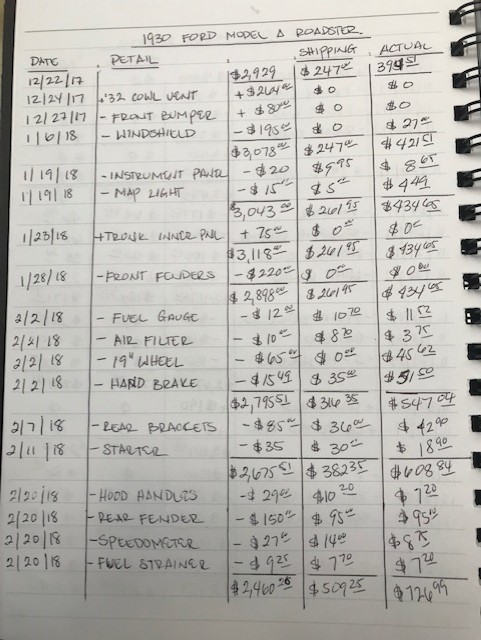 1930 FORD MODEL A ROADSTER
DATE DETAIL SHIPPING ACTUAL
12/22/17 $2,929 $247.00 394.51
12/24/17 + '32 COWL VENT + $264.00 $0 $0
12/27/17 - FRONT BUMPER + $80.00 $0 $0
1/6/18 - WINDSHIELD - $195.00 $0 $27.00
$3,078.00 $247.00 $421.51
1/19/18 - INSTRUMENT PANEL - $20 $9.95 $8.65
1/19/18 - MAP LIGHT - $15.00 $5.00 $4.49
3,043.00 $261.95 $434.65
1/23/18 + TRUNK INNER PNL + 75.00 $0.00 $0.00
$3,118.00 $261.95 $434.65
1/28/18 - FRONT FENDERS - $220.00 $0.00 $0.00
$2,898.00 $261.95 $434.65
2/2/18 - FUEL GAUGE - $12.00 $10.70 $11.52
2/2/18 - AIR FILTER - $10.00 $8.70 $3.75
2/2/18 - 19" WHEEL - $65.00 $0.00 $45.62
2/2/18 - HAND BRAKE - $15.49 $35.00 $51.50
$2,795.51 $316.35 $547.04
2/7/18 - REAR BRACKETS - $85.00 $36.00 $42.90
2/11/18 - STARTER - $35 $30.00 $18.90
$2,675.51 $382.35 $608.84
2/20/18 - HOOD HANDLES - $29.00 $10.20 $7.20
2/20/18 - REAR FENDER - $150.00 $95.00 $95.00
2/20/18 - SPEEDOMETER - $27.00 $14.00 $8.75
2/20/18 - FUEL STRAINER - $9.25 $7.70 $7.20
$2,460.26 $509.25 $726.99